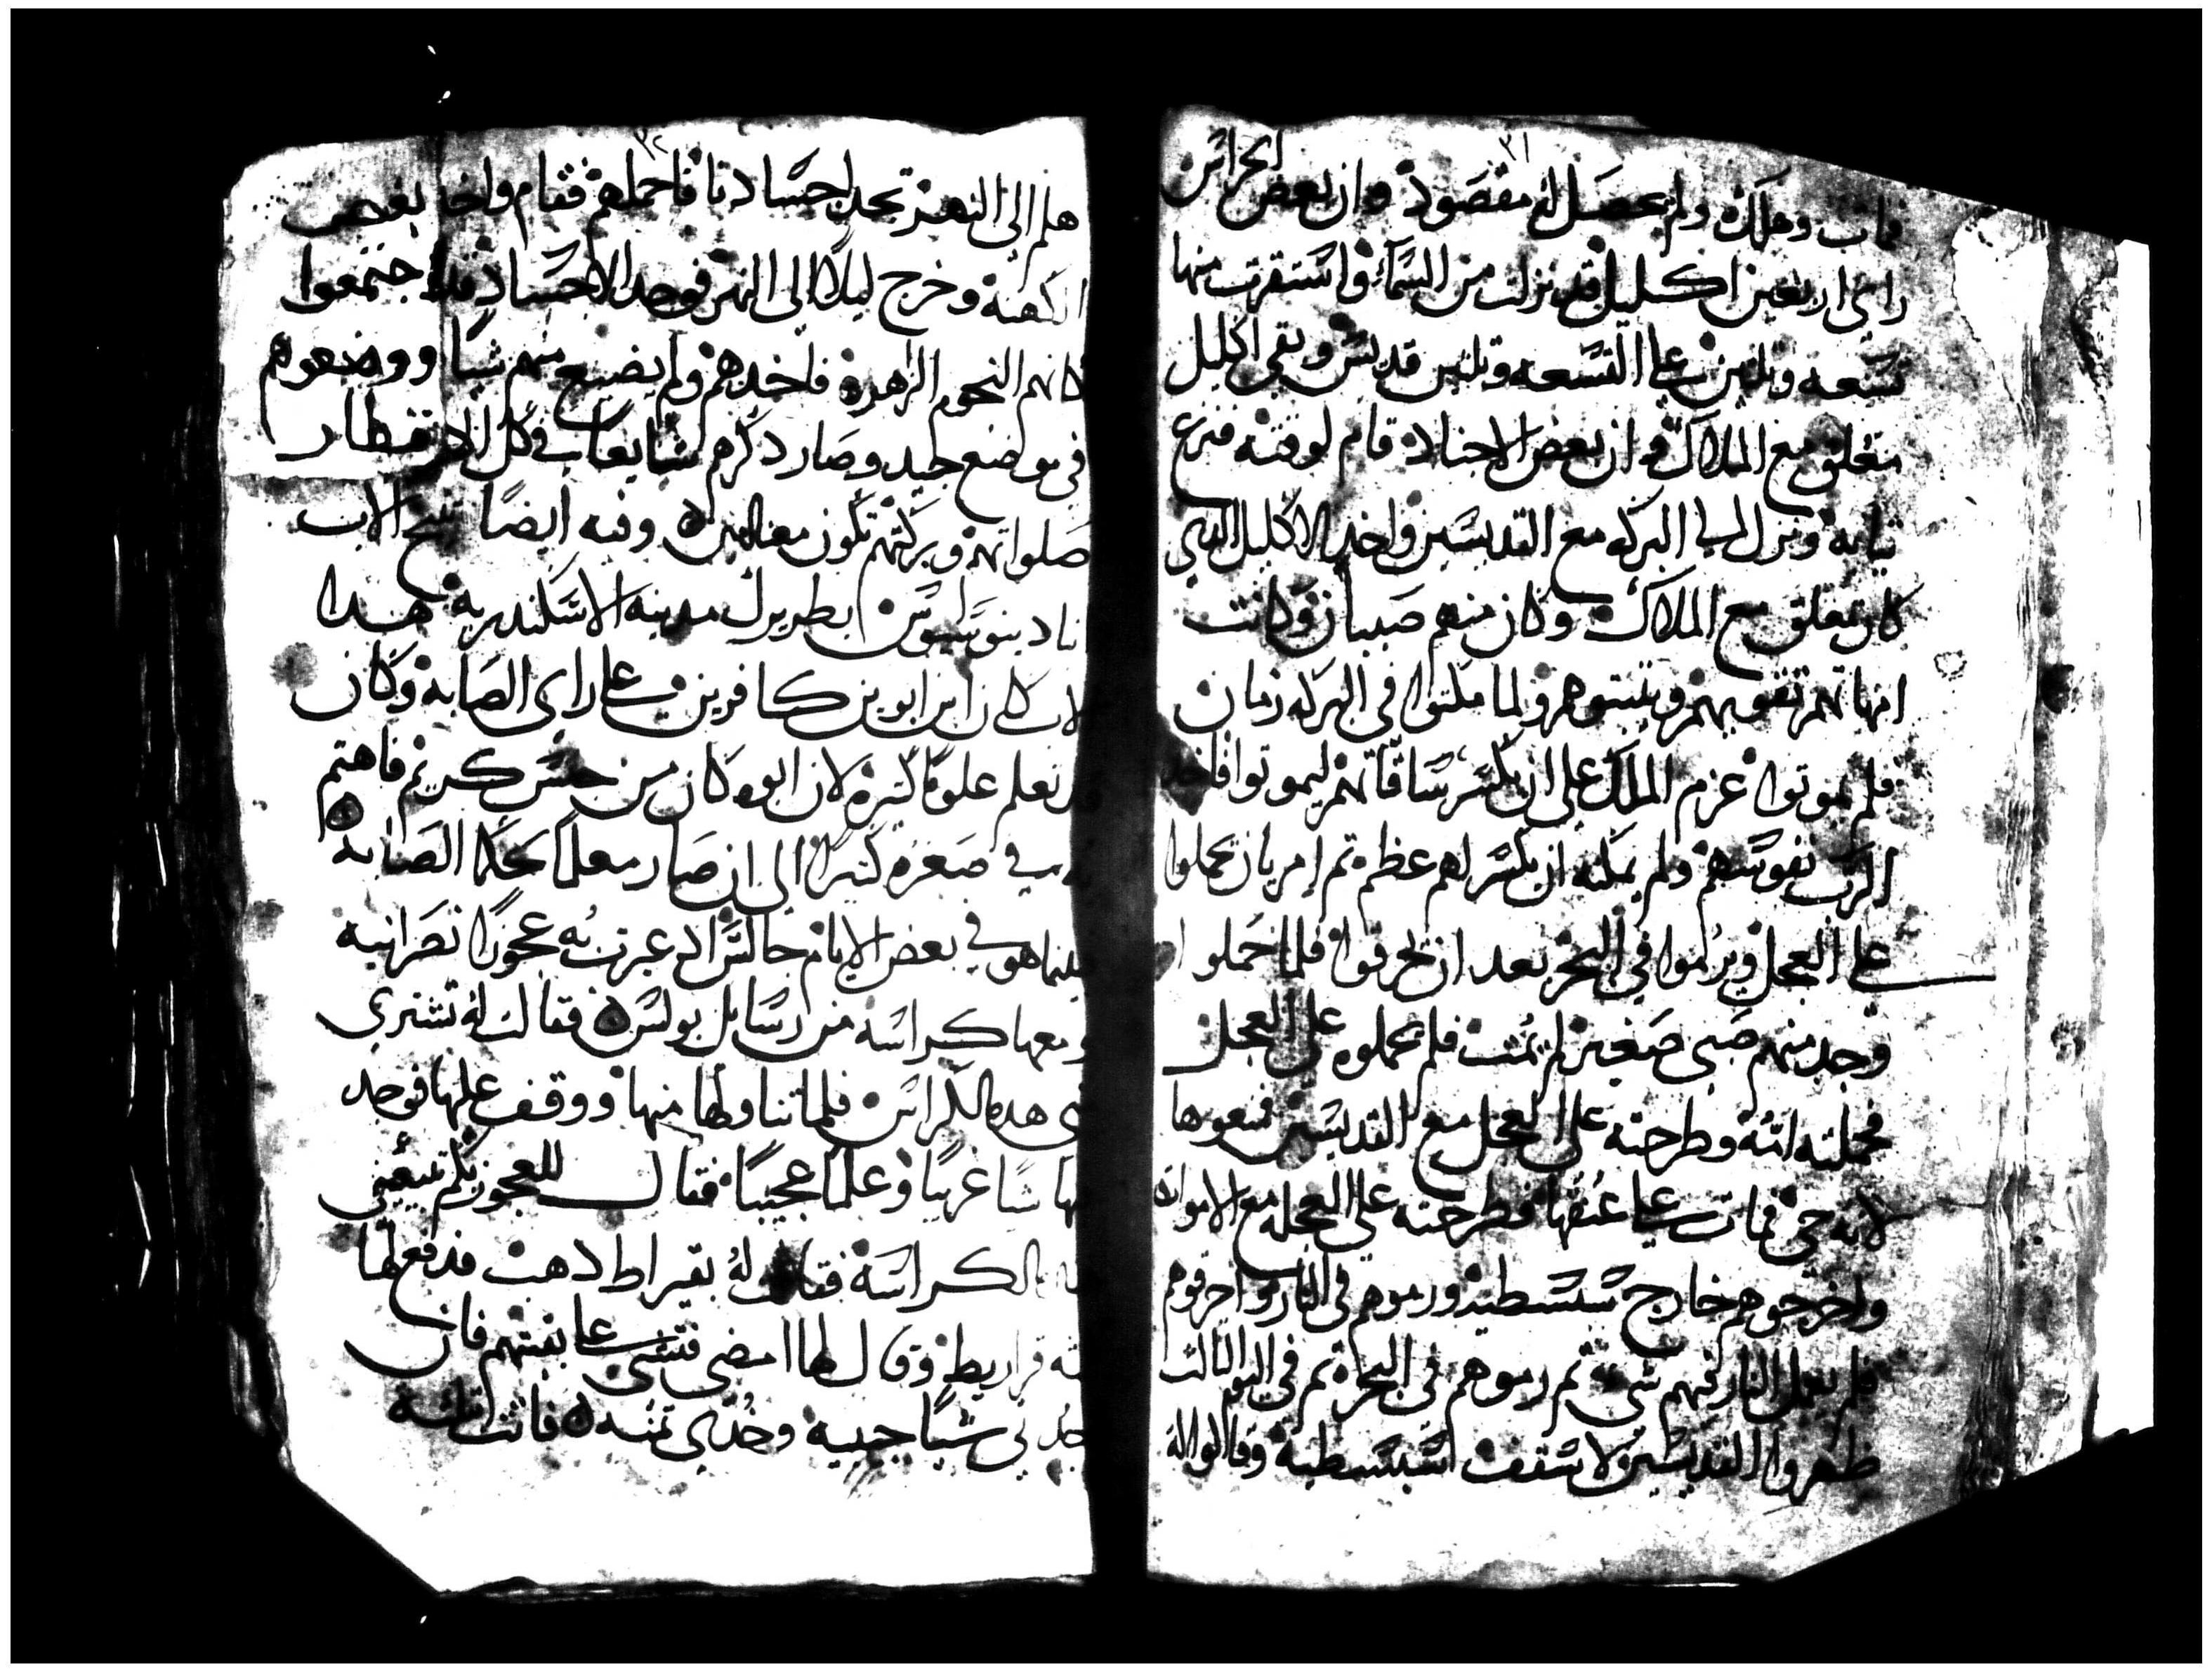 ٣١
فمات وهلك ولم يحصل له مقصود وان بعض الحراس
راي اربعين اكليل قد نزلت من السماء واستقرت منها
تسعه وتلتين على التسعه وتلتين قديس وبقي اكليل
متعلق مع الملاك وان بعض الاجناد قام لوقته فنزع
تيابه ونزل الي البركه مع القديسين واخد الاكليل الدي
كان متعلق مع الملاك وكان منهم صبيان وكانت
امهاتهم تقويهم ويتبتوهم ولما مكتوا في البركه زمان
فلم يموتوا عزم الملك على ان يكسر ساقاتهم ليموتوا فاخد
الرب نفوسهم ولم يمكنه ان يكسر لهم عظم تم امر بان يحملوا
على العجل ويرموا في البحر بعد ان يحرقوا فلما حملوا
وجد منهم صبي صغير لم يمت فلم يحملوه على العجل
فحملته امه وطرحته على العجل مع القديسين فمنعوها
لانه حي فمات على عنقها فطرحته على العجله مع الاموات
واخرجوهم خارج سبسطيه ورموهم في النار واحرقوهم
فلم تعمل النار فيهم شي تم رموهم في البحر تم في اليوم التالت
ظهروا القديسين لاسقف اسبسطية وقالوا له
٣٢
هلم الى النهر تجد اجسادنا فاحملهم فقام واخد بعض
الكهنة وخرج ليلا الى النهر فوجد الاجساد قد اجتمعوا
كانهم النجوم الزهره فاخدهم ولم يضيع منهم شيا ووضعوهم
في موضع جيد وصار دكرهم شايعا في كل الاقطار
صلواتهم وبركتهم تكون معنا امين وفيه ايضا تنيح الاب
انبا ديونوسيوس بطريرك مدينه الاسكندريه هدا
الاب كان ابن ابوين كافرين على راى الصابه وكان
قد تعلم علوما كتيره لان ابوه كان من جنس كريم فاهتم
في صغره كتيرا الى ان صار معلما لحكما الصابه
بينما هو في بعض الايام جالس اد عبرت به عجوزا نصرانيه
ومعها كراسه من رسايل بولس فقالت له تشتري
مني هده الكراس فلما تناولها منها ووقف عليها فوجد
بها شيا غريبا وعلما عجيبا فقال للعجوز بكم تبيعيني
الكراسة فقالت له بقيراط دهب فدفع لها
قراريط وقال لها امضي فتشي على بقيتهم فان
وجدتي شيا جيبيه وخدي تمنه فاتت